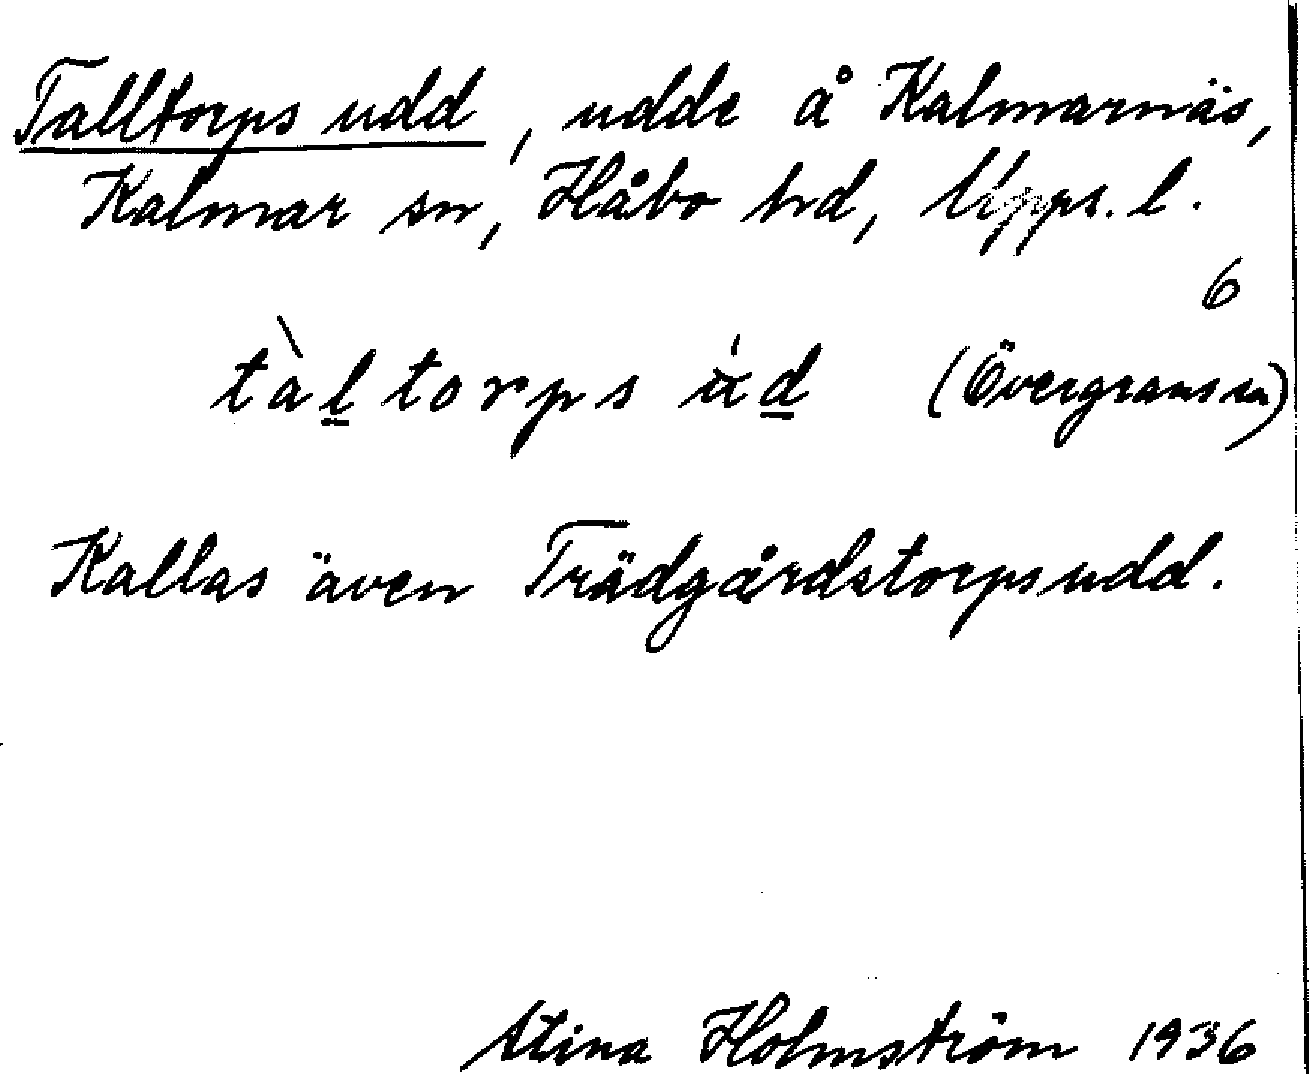 Talltorps udd, udde å Kalmarnäs,
Kalmar sn, Håbo hd, Upps. l.
6
tàl torps úd (Övergrans sn)
Kallas även Trädgårdstorpsudd.
Stina Holmström 1936